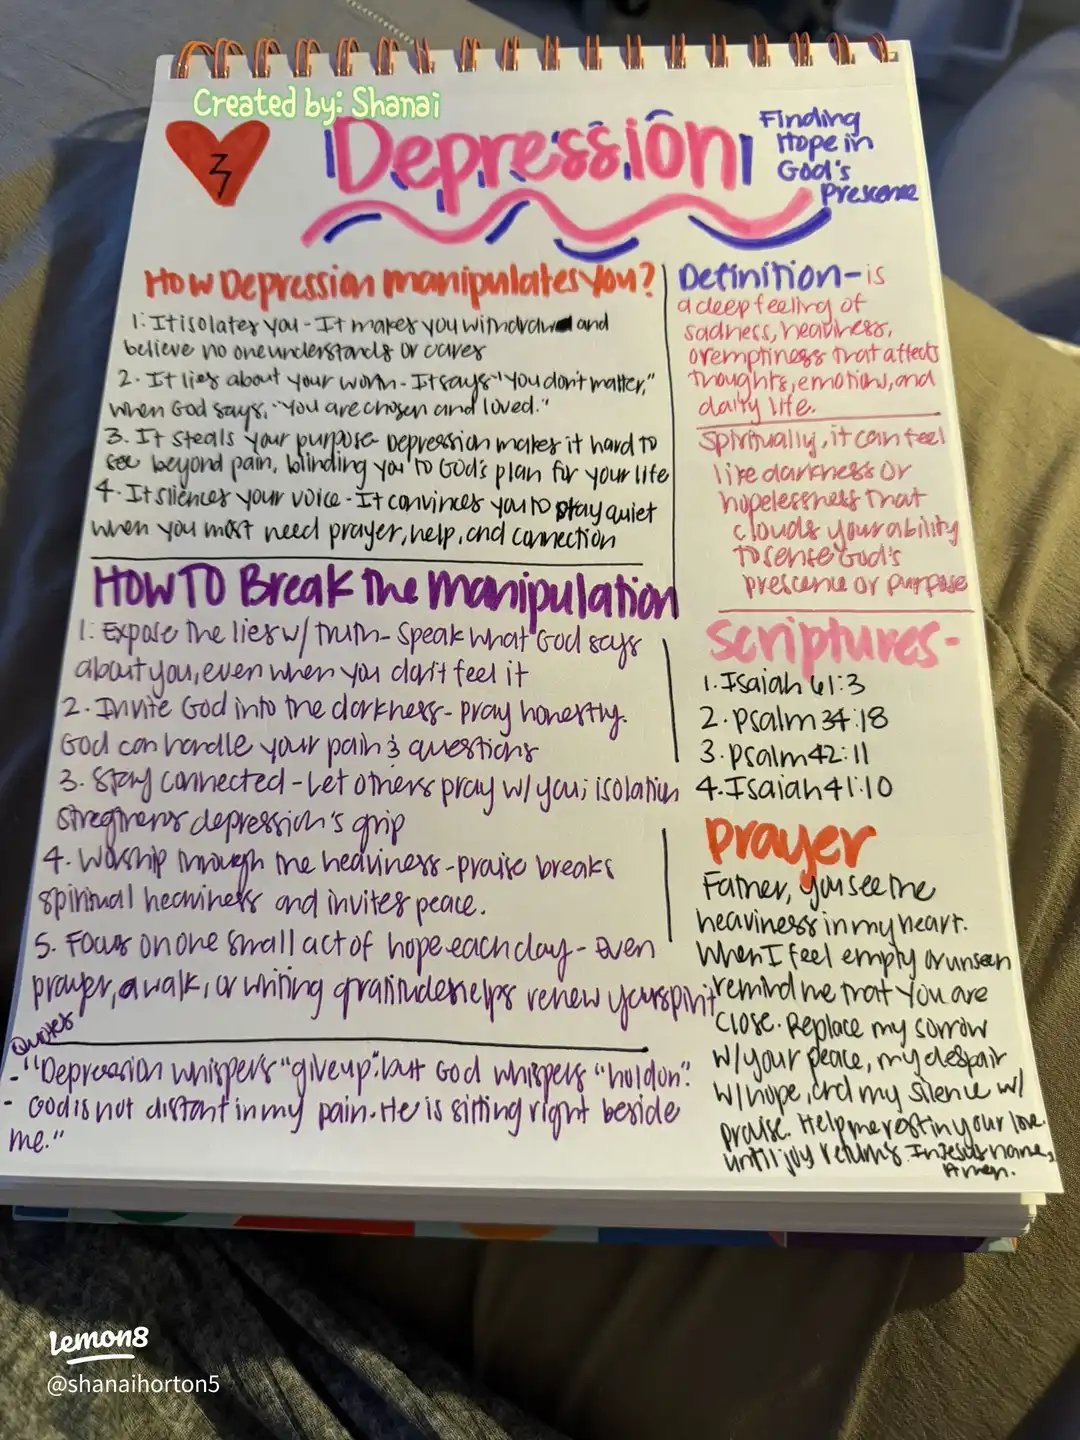 Created by: Shanai
Depression
Finding
Hope in
God's
Prescence
How Depression manipulates you?
1. It isolates you - It makes you withdraw and
believe no one understands or cares
2. It lies about your worth - It says "you don't matter,"
when God says, "you are chosen and loved."
3. It steals your purpose - Depression makes it hard to
see beyond pain, blinding you to God's plan for your life
4. It silences your voice - It convinces you to stay quiet
when you most need prayer, help, and connection
How To Break the manipulation
1. Expose the lies w/ truth - Speak what God says
about you, even when you don't feel it
2. Invite God into the darkness - pray honestly.
God can handle your pain & questions
3. Stay connected - Let others pray w/ you; isolation
depression's grip
4. Worship through the heaviness - praise breaks
spiritual heaviness and invites peace.
5. Focus on one small act of hope each day - Even
prayer, a walk, or writing gratitude helps renew your spirit
Quotes
- "Depression whispers "give up", but God whispers "hold on".
- God is not distant in my pain. He is sitting right beside
me."
Definition - is
a deep feeling of
sadness, heaviness,
or emptiness that affects
thoughts, emotions, and
daily life.
Spiritually, it can feel
like darkness or
hopelessness that
clouds your ability
to sense God's
prescence or purpose
Scriptures -
1. Isaiah 61:3
2. Psalm 34:18
3. Psalm 42:11
4. Isaiah 41:10
Prayer
Father, you see the
heaviness in my heart.
When I feel empty or unseen
remind me that you are
close. Replace my sorrow
w/ your peace, my despair
w/ hope, and my silence w/
praise. Help me rest in your love
until joy returns. In Jesus name,
Amen.
lemon8
@shanaihorton5